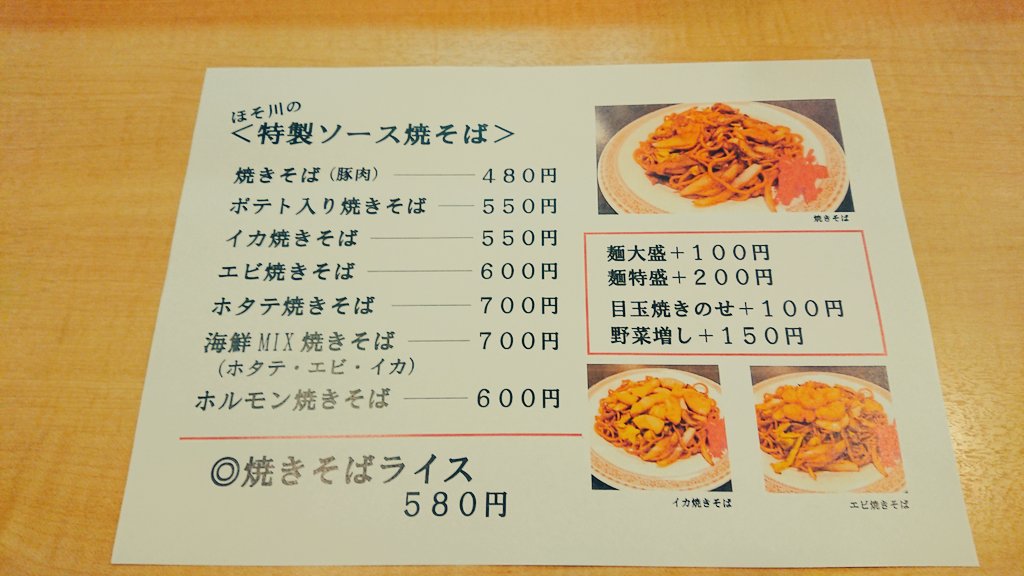 ほそ川の
＜特製ソース焼そば＞
焼きそば（豚肉）―――４８０円
ポテト入り焼きそば――５５０円
イカ焼きそば ――――５５０円
エビ焼きそば ――――６００円
ホタテ焼きそば ―――７００円
海鮮MIX焼きそば ――７００円
（ホタテ・エビ・イカ）
ホルモン焼きそば ――６００円
◎焼きそばライス
５８０円
焼きそば
麺大盛＋１００円
麺特盛＋２００円
目玉焼きのせ＋１００円
野菜増し＋１５０円
イカ焼きそば
エビ焼きそば